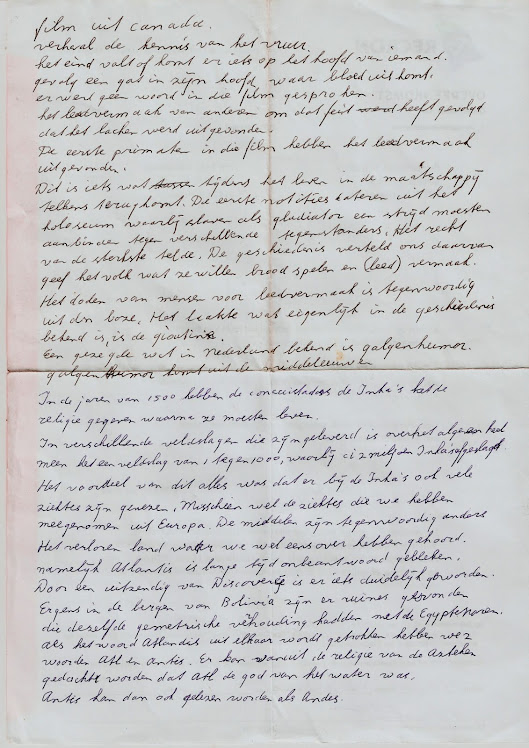 film uit canada.
verhaal de kennis van het vuur.
het eind valt of komt er iets op het hoofd van iemand.
gevolg een gat in zijn hoofd waar bloed uit komt.
er werd geen woord in die film gesproken.
het leedvermaak van anderen om dat feit werd heeft gevolgd
dat het lachen werd uitgevonden.
De eerste primaten in die film hebben het leedvermaak
uitgevonden.
Dit is iets wat tussen tijdens het leven in de maatschappij
telkens terug komt. De eerste notities dateren uit het
koloseum waarbij slaven als gladiator een strijd moesten
aanbinden tegen verschillende tegenstanders. Het recht
van de sterkste telde. De geschiedenis verteld ons daarvan
geef het volk wat ze willen brood spelen en (leed) vermaak.
Het doden van mensen voor leedvermaak is tegenwoordig
uit den boze. Het laatste wat eigenlijk in de geschiedenis
bekend is, is de
Een gezegde wat in Nederland bekend is galgenhumor.
galgenhumor komt uit de middeleeuwen
In de jaren van 1500 hebben de conquistadors de Inka's
religie gegeven waarna ze moesten leven.
In verschillende veldslagen die zijn geleverd is over het algemeen had
men het een veldslag van 1 tegen 1000, waarbij 2 miljoen Inka's
Het voordeel van dit alles was dat er bij de Inka's ook vele
ziektes zijn genezen. Misschien wel de ziektes die we hebben
meegenomen uit Europa. De middelen zijn tegenwoordig anders
Het verloren land water we wel eens over hebben gehoord.
namelijk Atlantis is lange tijd onbeantwoord gebleken.
Door een uitzending van Discovery is er iets duidelijk geworden.
Ergens in de bergen van Bolivia zijn er ruines gevonden
die dezelfde gemetrische verhouding hadden met de Egyptenaren.
als het woord Atlandis uit elkaar wordt getrokken hebben we 2
woorden Atl en Antis. Er kan vanuit de religie van de Azteken
gedachte worden dat Atl de god van het water was.
Antis kan dan ook gelezen worden als Andes.